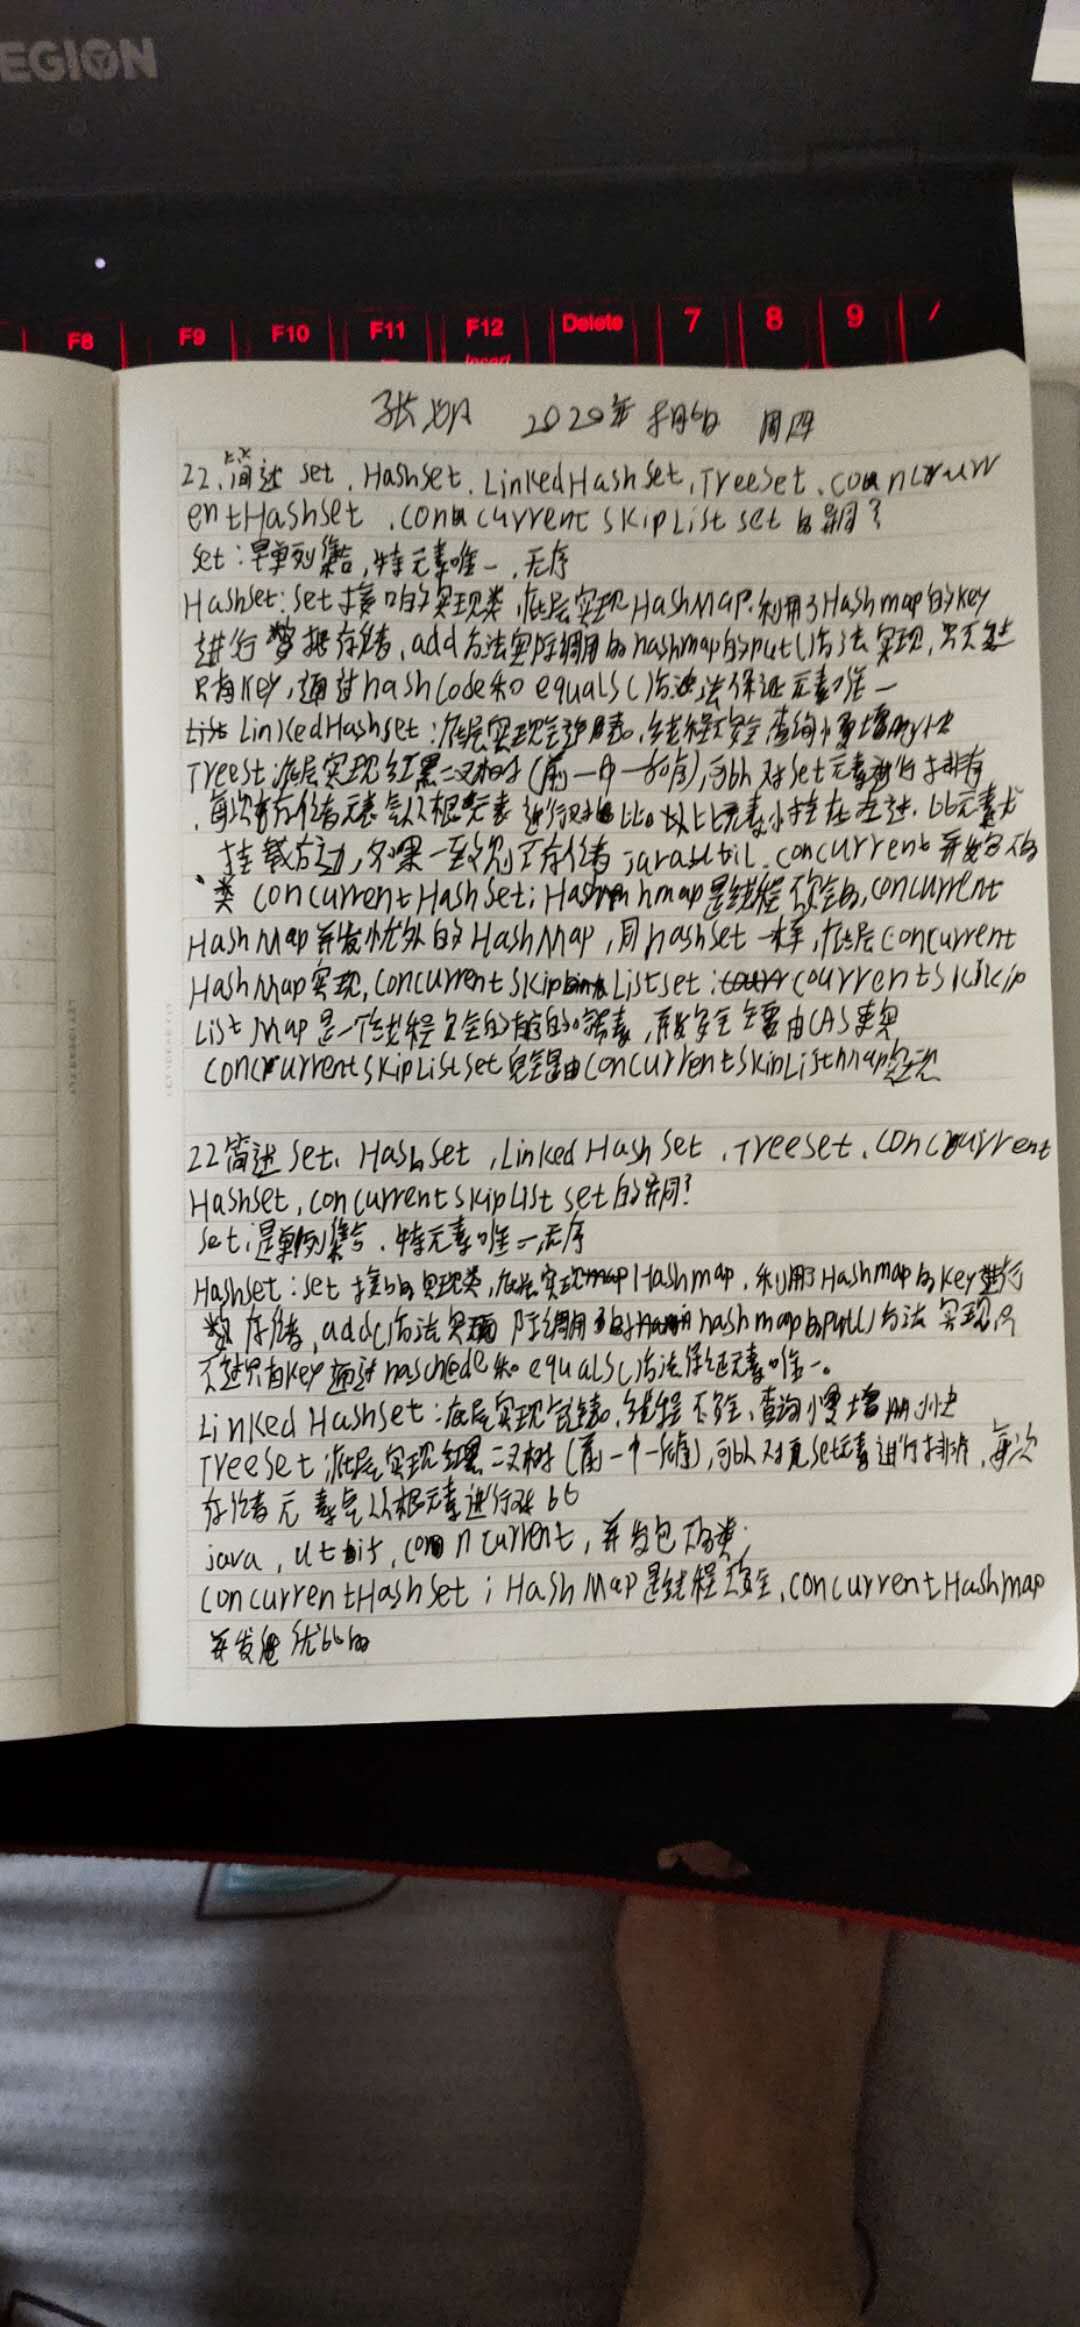 EGION
F8 F9 F10 F11 F12 Delete 7 8 9 /
Insert
张 2020年8月6日 周四
22.简述 set. HashSet. LinkedHashSet, TreeSet. councurr
entHashSet .concurrent skipList set 的异同?
set:单列集合,特元素唯一,无序
HashSet:set接口的实现类,底层实现HashMap.利用了Hashmap的key
进行数据存储,add方法实际调用的hashmap的put()方法实现,只不过
只有key,通过hashCode和equals()方法保证元素唯一
LinkedHashset:底层实现链表,线程不安全查询慢增删快
Treest:底层实现红黑二叉树(前一中一后序),可以对set元素进行排序
每次存储元素会从根元素进行对比以比元素小挂在左边.比元素大
挂载右边,如果一致则不存储 java util.concurrent并发包下的
类 concurrentHashSet: Hashmap是线程不安全的,concurrent
HashMap并发 的HashMap,同hashset一样,底层concurrent
HashMap实现,concurrentskipListset:courrentskikip
List Map是一个线程安全的有序的 ,并发安全主要由CAS
concrurrentskipListset完全是由concurrentskipListmap实现
22简述set. HashSet ,Linked HashSet .Treeset.concurrent
HashSet,concurrentskipList set的异同?
set:是单列集合.特元素唯一,无序
Hashset:set接口的实现类,底层实现Hashmap.利用了Hashmap的key进行
数 存储,add()方法实际调用了的hashmap的put()方法实现只
不过只有key通过hashcode和equals()方法保证元素唯一。
Linked Hashset:底层实现链表,线程不安全,查询慢增删快
Treeset:底层实现红黑二叉树(前一中一后序),可以对set元素进行排序,每次
存储元素会从根元素进行对比
java,utbit,concurrent,并发包下的类:
concurrentHashSet;HashMap是线程不安全,concurrentHashmap
并发 优 的